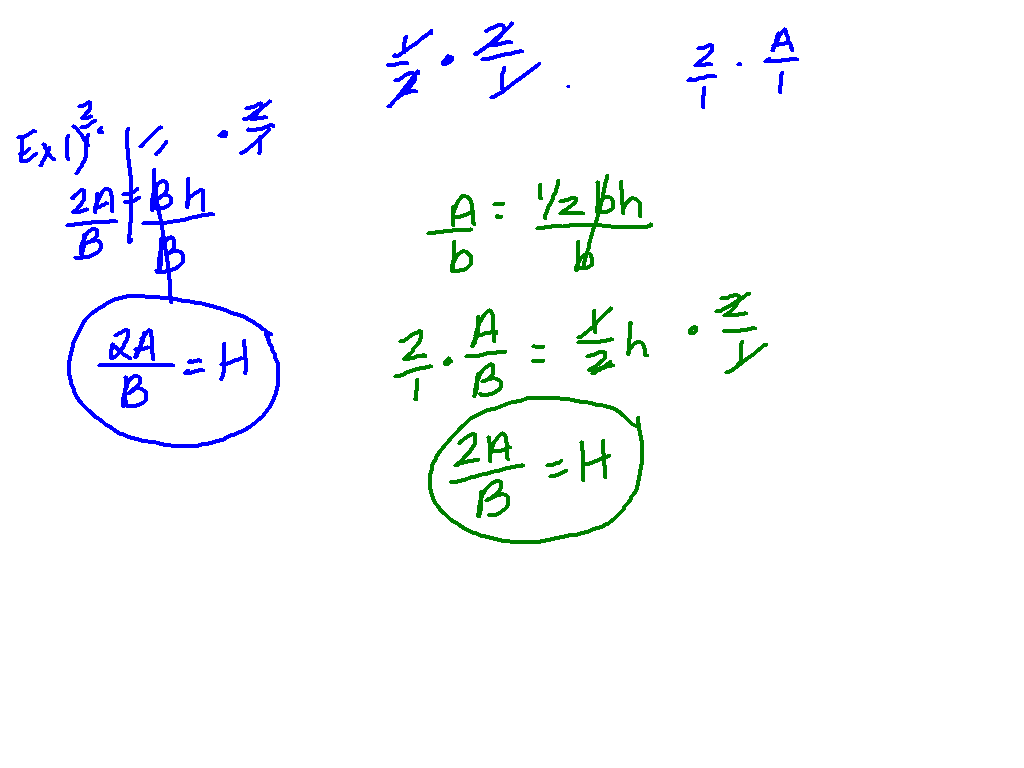 1/2 · 2/1 .
2/1 · A/1
Ex 1) 2/1 · = · 2/1
2A/B = Bh/B
2A/B = H
A/b = 1/2 bh/b
2/1 · A/B = 1/2 h · 2/1
2A/B = H